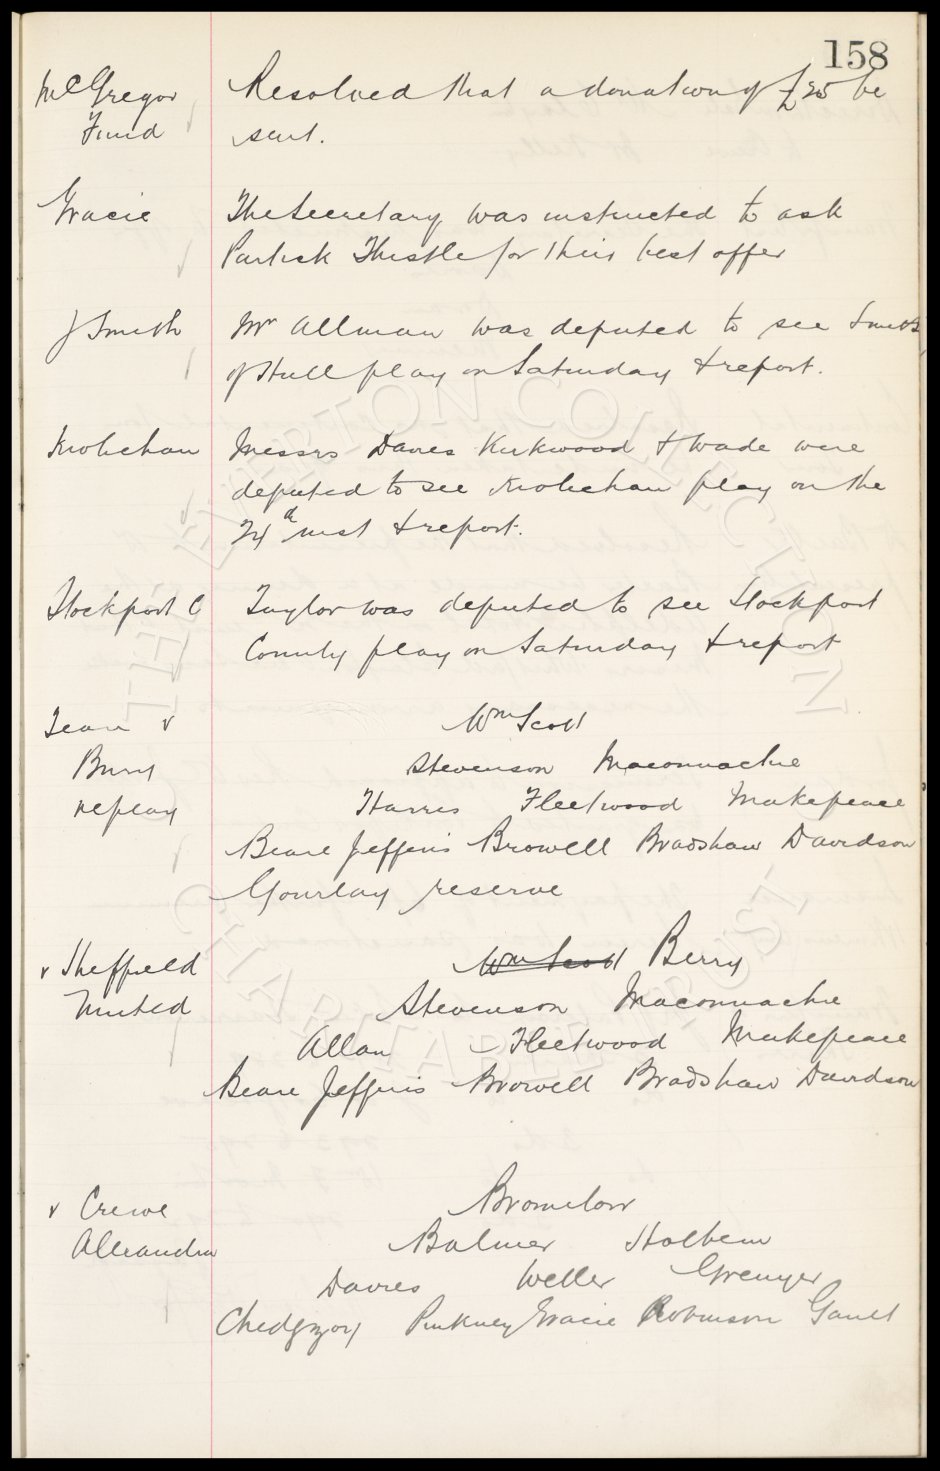 158
McGregor Resolved that a donation of £25 be
Fund sent.
Gracie The Secretary was instructed to ask
Partick Thistle for their best offer
J Smith Mr Allman was deputed to see Smith
of Hull play on Saturday & report.
Messrs Davies Kirkwood & Wade were
deputed to see play on the
24th inst & report.
Stockport C Taylor was deputed to see Stockport
County play on Saturday & report
Team v Wm Scott
Bury Stevenson Maconnachie
replay Harris Fleetwood Makepeace
Beare Jefferis Browell Bradshaw Davidson
Gourlay reserve
v Sheffield Wm Scott Berry
United Stevenson Maconnachie
Allan Fleetwood Makepeace
Beare Jefferis Browell Bradshaw Davidson
v Crewe Bromilow
Alexandra Balmer Holbem
Davies Weller Grenyer
Chedgzoy Pinkney Gracie Robinson Gault
THE EVERTON COLLECTION
CHARITABLE TRUST